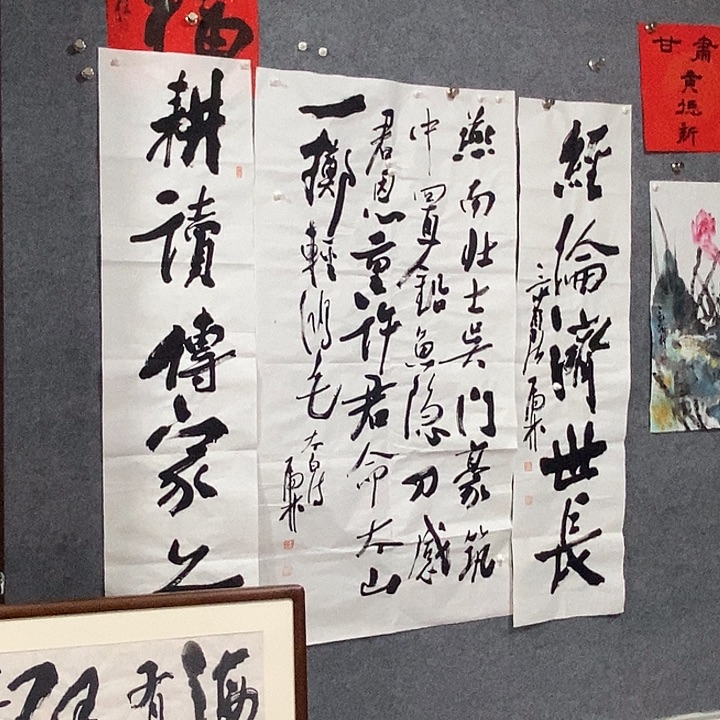 經綸濟世長
燕南壮士吳门豪筑
中置鉛魚隐刀感
君恩重许君命太山
一擲輕鴻毛
太白诗
耕讀傳家久
福
甘肅
新
海有